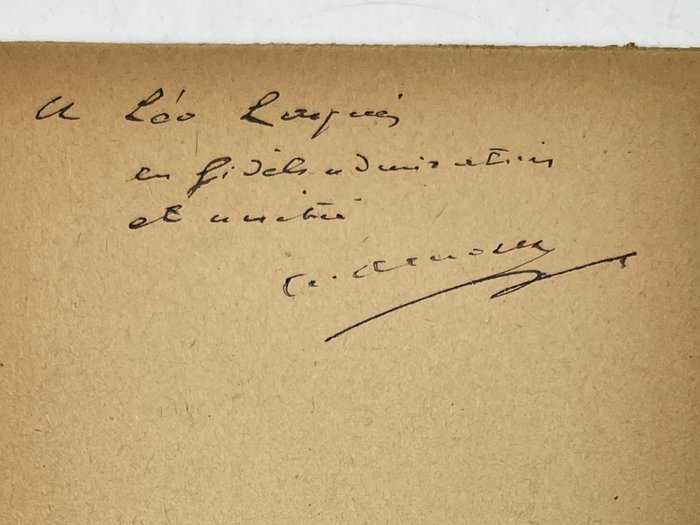 A Léo Larguier
en fidèle admiration
et amitié